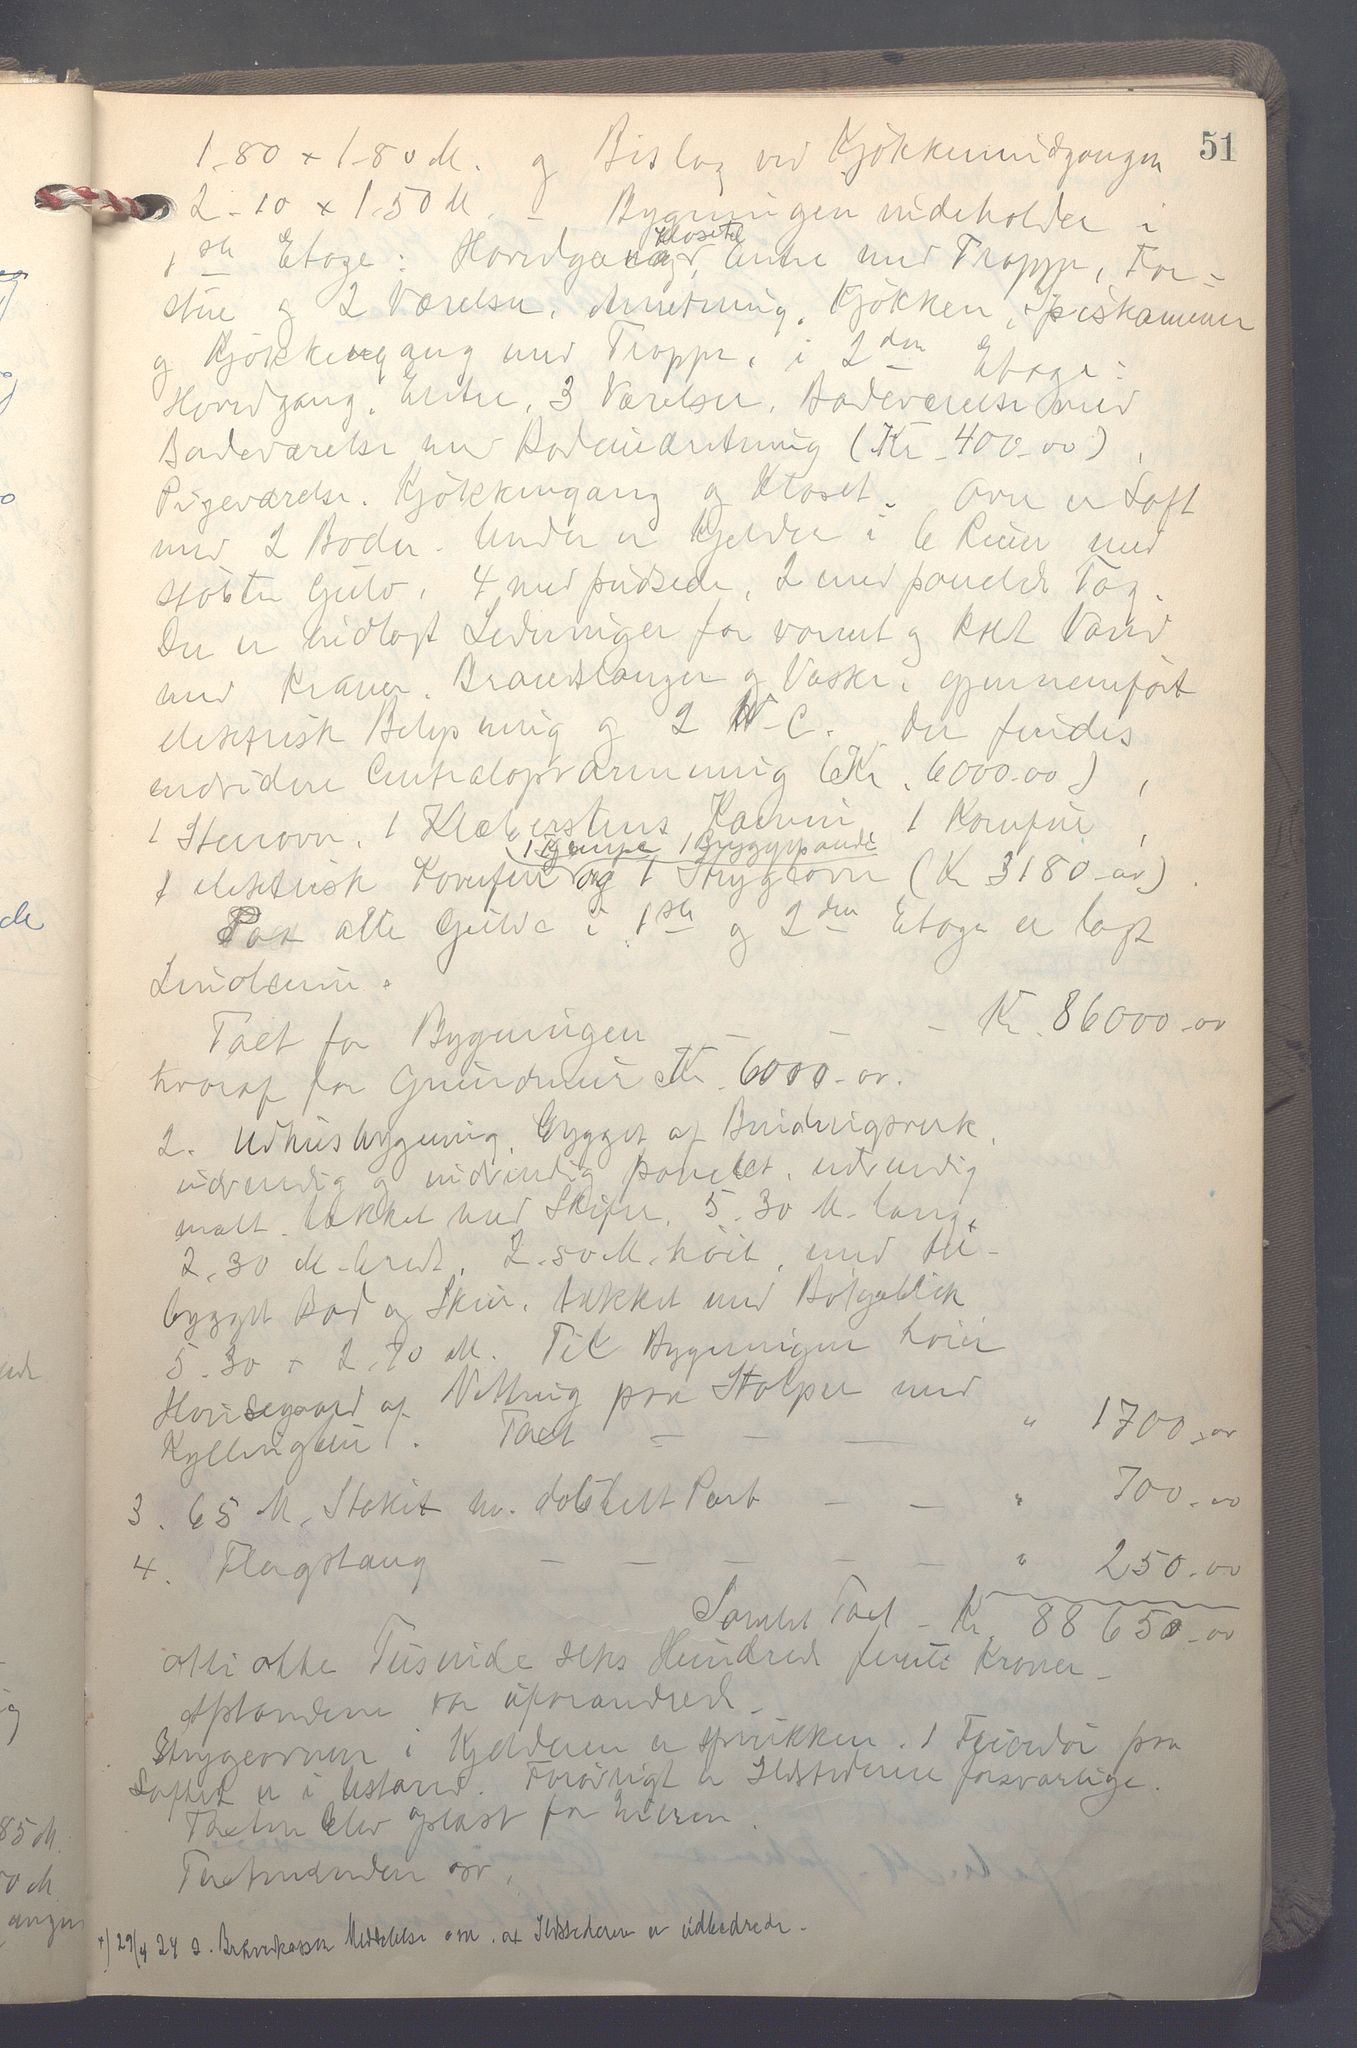 51
1-80 x 1-80 M. og Bislag ved Kjøkkenindgangen
2-10 x 1-50 M. - Bygningen indeholder i
1ste Etage: Hovedgang, Klosett, Entre med Trappe, For-
stue og 2 Værelser, Anretning, Kjøkken, Spiskammer
og Kjøkkengang med Trappe, i 2den Etage:
Hovedgang, Entre, 3 Værelser, Badeværelse med
Badeværelse med Badeindretning (Kr. 400-00),
Pigeværelse, Kjøkkengang og Kloset. Over er Loft
med 2 Boder. Under er Kjelder i 6 Rum med
støbte Gulv, 4 med pudsede, 2 med panelede Tag.
Der er indlagt Ledninger for varmt og koldt Vand
med Kraner, Brandslanger og Vaske, gjennemført
elektrisk Belysning og 2 W-C. Der findes
endvidere Centralopvarmning (Kr. 6000-00),
1 Stenovn, 1 Klæberstens Kamin, 1 Komfur,
1 Gruppe 1 Bryggepande
1 elektrisk Komfur og 1 Strygeovn (Kr 3180-00).
Paa alle Gulve i 1ste og 2den Etage er lagt
Linoleum.
Taxt for Bygningen - - - Kr. 86000-00
hvoraf for Grundmur Kr. 6000-00.
2. Udhusbygning, bygget af Bindingsverk,
udvendig og indvendig panelet, udvendig
malt, tækket med Skifer, 5-30 M. lang,
2,30 M. bred, 2-50 M. høit, med til-
bygget Bod og Skur, tækket med Bølgeblik
5-30 x 2,70 M. Til Bygningen hører
Hønsegaard af Netting paa Stolper med
Kyllinghus. Taxt - - - " 1700,00
3. 65 M. Stakit m. dobbelt Port - - " 700-00
4. Flagstang - - - - - " 250-00
Samlet Taxt - Kr. 88 650-00
otti otte Tusinde seks Hundrede femti Kroner-
Afstandene var uforandrede.
Strygeovnen i Kjelderen er sprukken. 1 Feierdør paa
Loftet er i Ustand. Forøvrigt er Ildstederne forsvarlige.
Taxten blev oplæst for Eieren.
Taxtmændene
x) 29/4 24 d. Brandkassen Meddelse om, at Ildstederne er udbedrede.